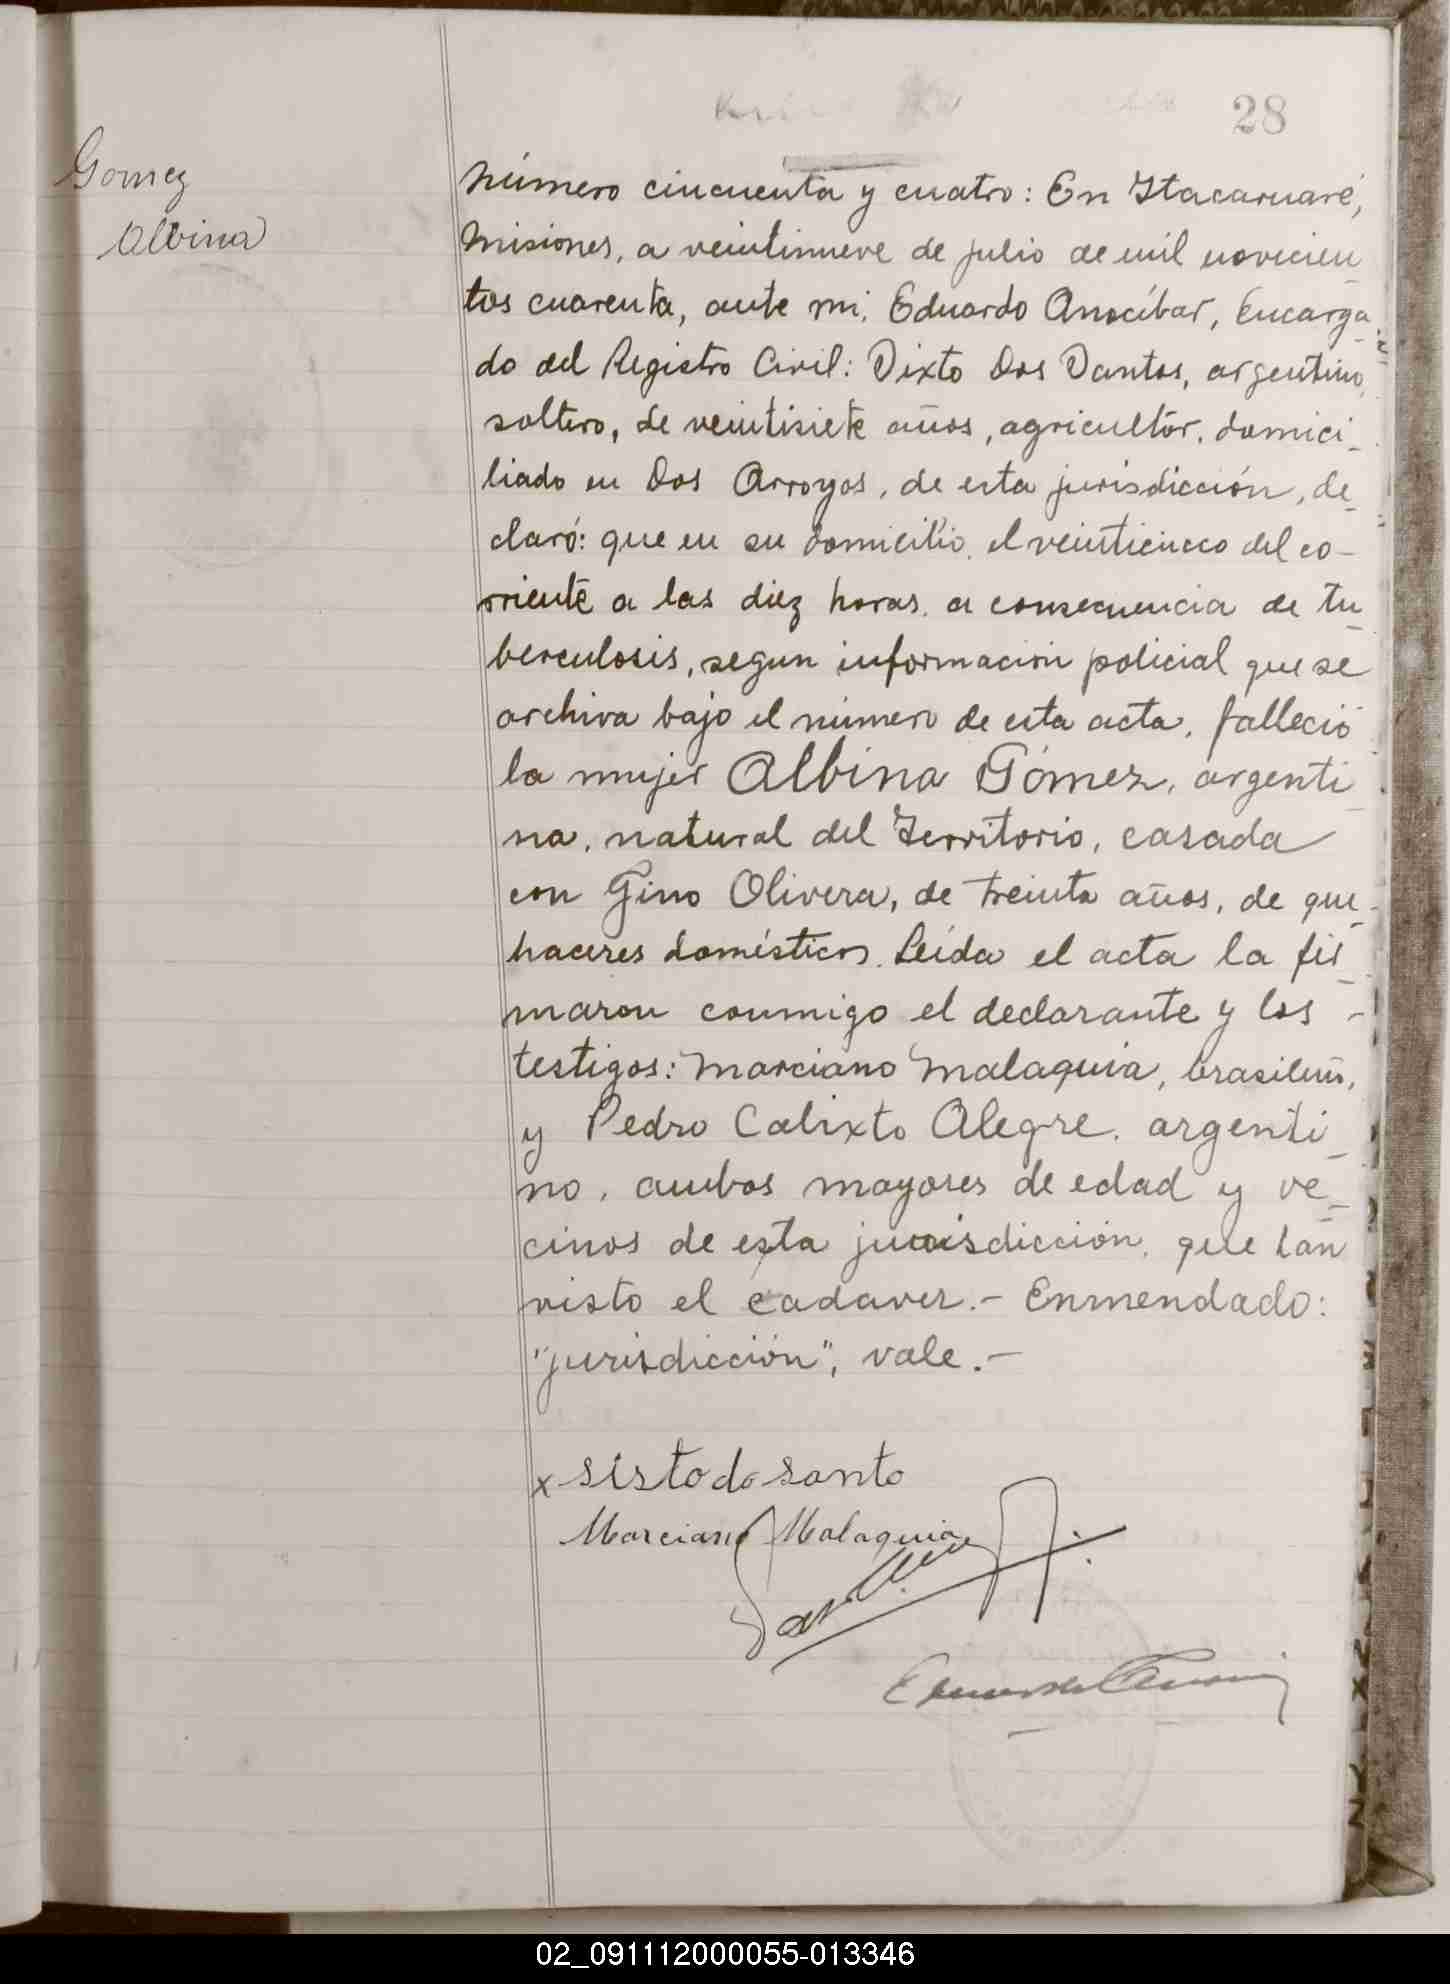 28
Gomez
Albina
Número cincuenta y cuatro: En Itacaruaré,
Misiones, a veintinueve de julio de mil novecien
tos cuarenta, ante mi, Eduardo Anocíbar, Encarga
do del Registro Civil: Sixto Dos Santos, argentino,
soltero, de veintisiete años, agricultor, domici
liado en Dos Arroyos, de esta jurisdicción, de
claró: que en su domicilio, el veinticinco del co-
rriente a las diez horas, a consecuencia de tu
berculosis, segun información policial que se
archiva bajo el número de esta acta, falleció
la mujer Albina Gómez, argenti
na, natural del Territorio, casada
con Gino Olivera, de treinta años, de que
haceres domésticos. Leída el acta la fir
maron conmigo el declarante y los -
testigos: Marciano Malaquia, brasileño,
y Pedro Calixto Alegre, argenti
no, ambos mayores de edad y ve
cinos de esta jurisdicción, que han
visto el cadaver.- Enmendado:
"jurisdicción", vale.-
x sisto do santo
Marciano Malaquia
02_091112000055-013346